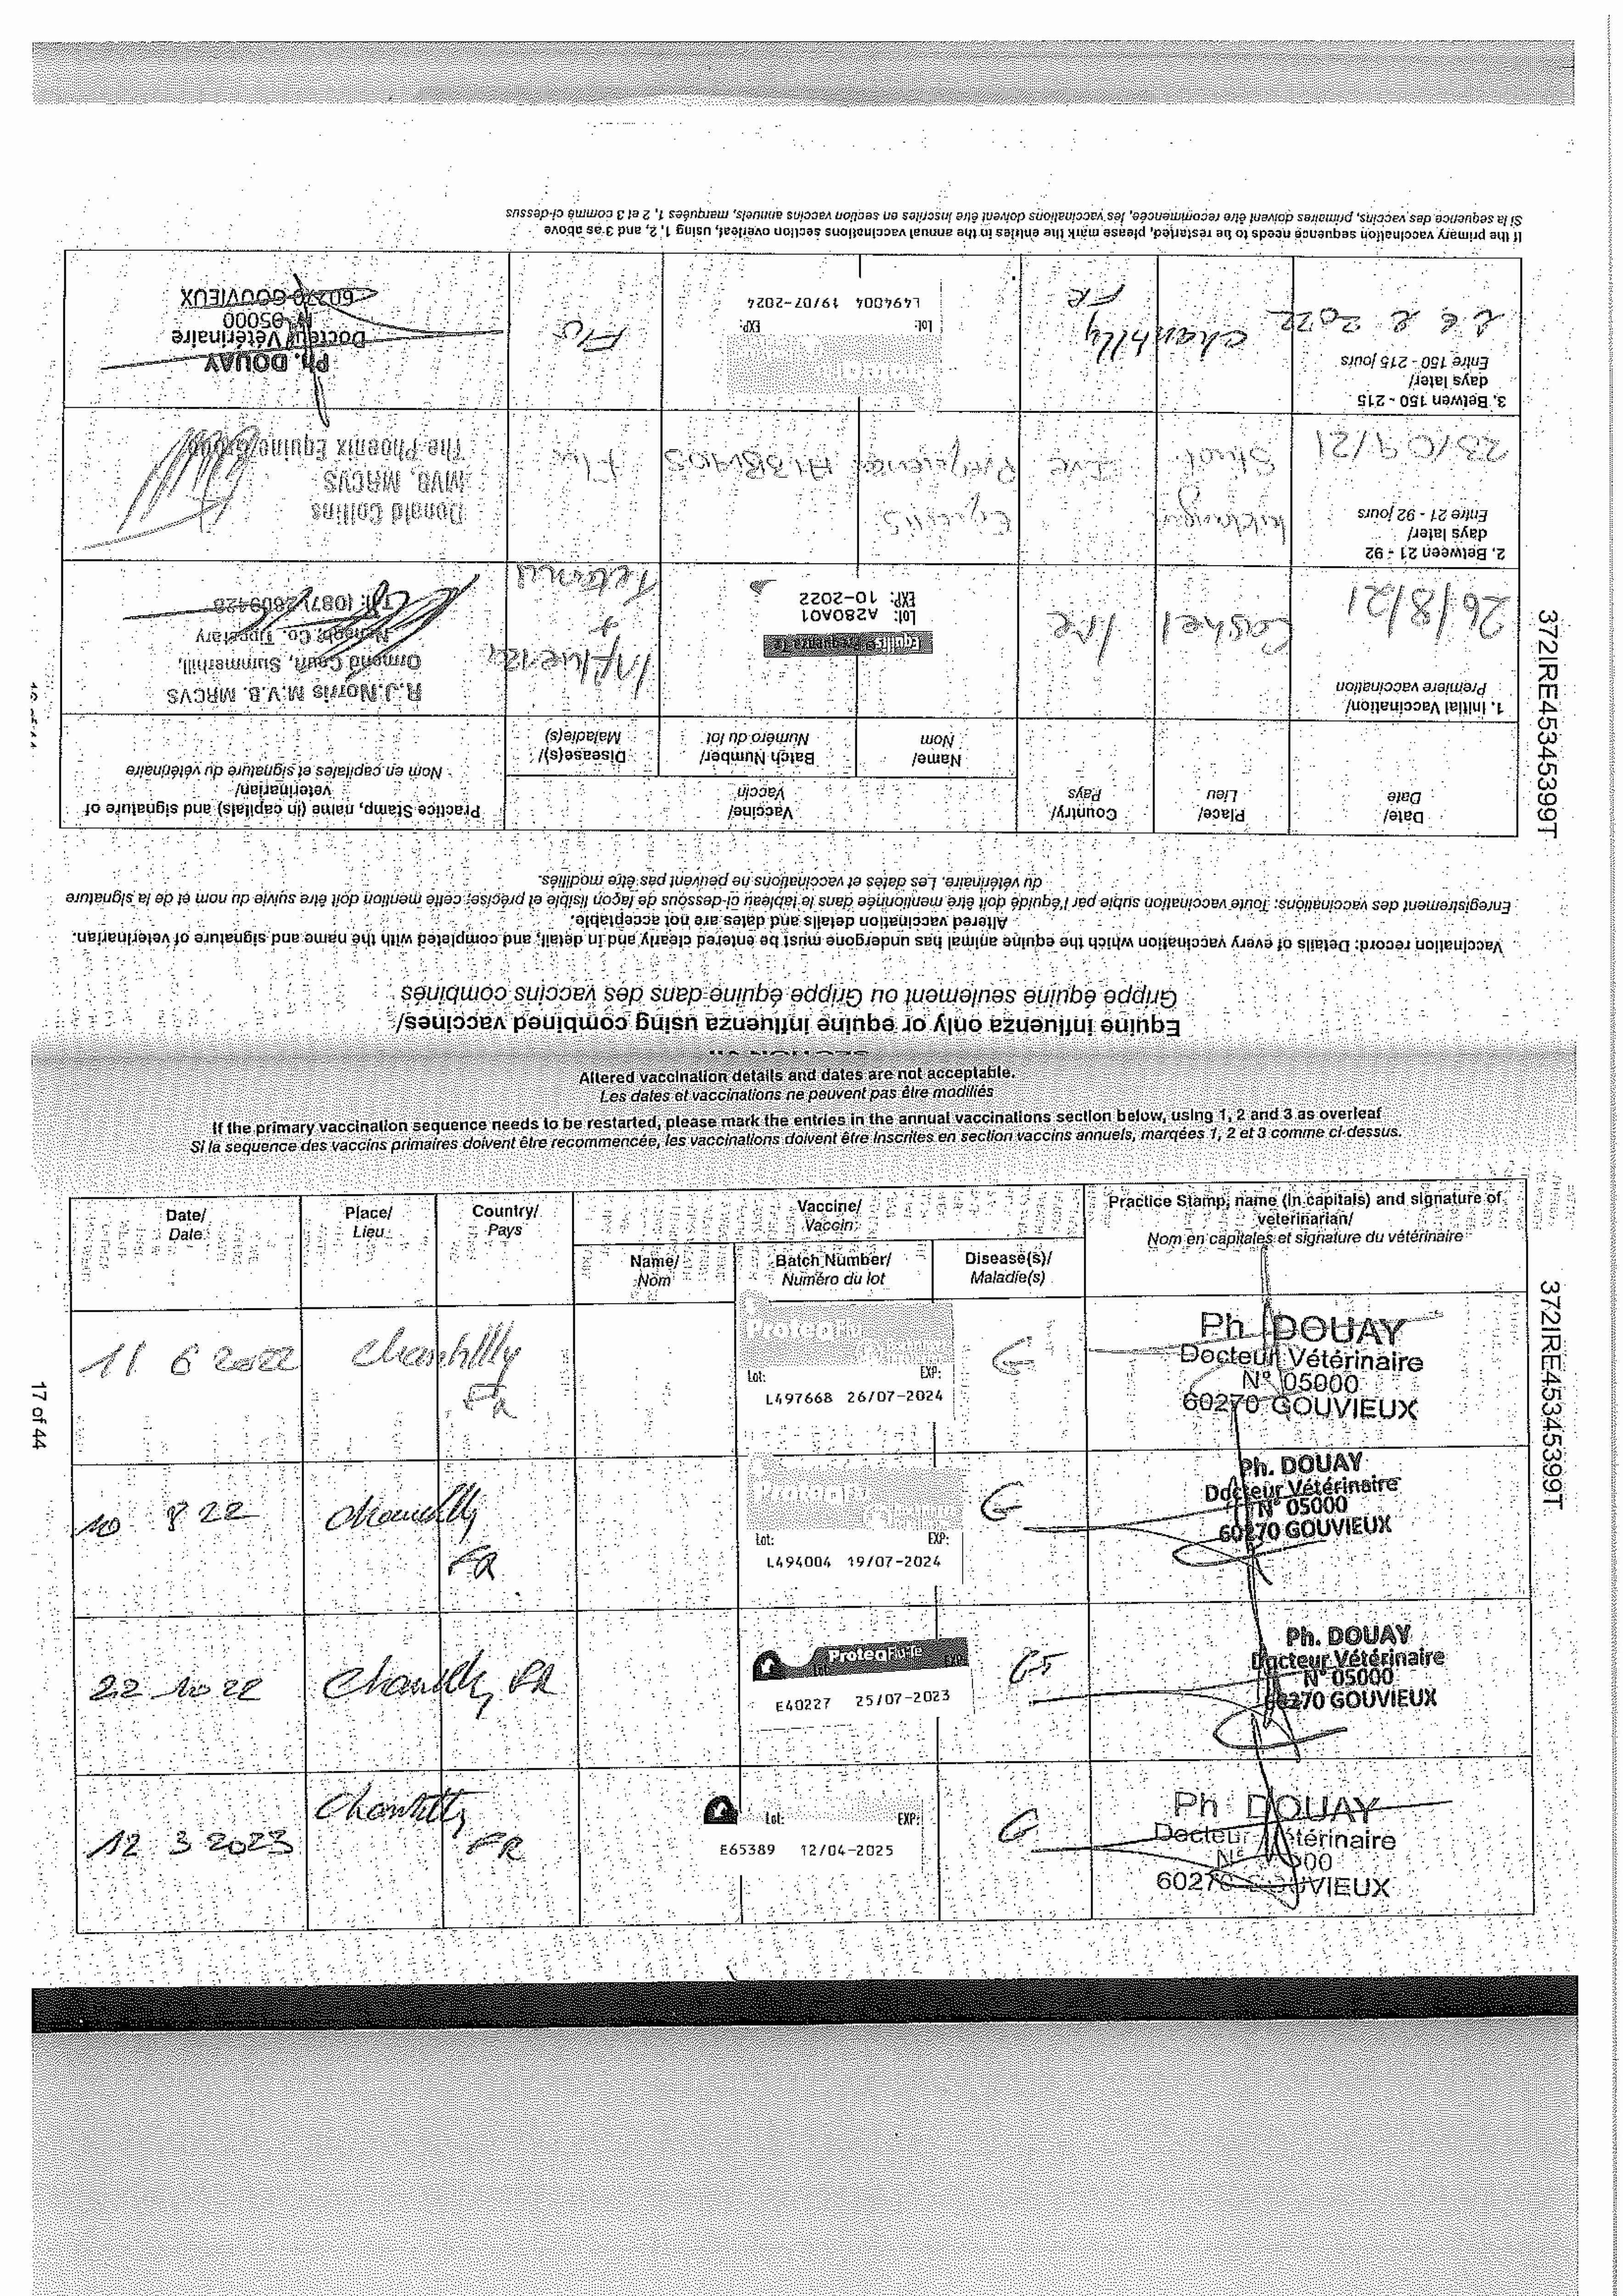 SECTION VII
Equine influenza only or equine influenza using combined vaccines/
Grippe équine seulement ou Grippe équine dans des vaccins combinés
Vaccination record: Details of every vaccination which the equine animal has undergone must be entered clearly and in detail, and completed with the name and signature of veterinarian.
Altered vaccination details and dates are not acceptable.
Enregistrement des vaccinations: Toute vaccination subie par l'équidé doit être mentionnée dans le tableau ci-dessous de façon lisible et précise; cette mention doit être suivie du nom et de la signature
du vétérinaire. Les dates et vaccinations ne peuvent pas être modifiés.
Date/
Date
Place/
Lieu
Country/
Pays
Vaccine/
Vaccin
Name/
Nom
Batch Number/
Numéro du lot
Disease(s)/
Maladie(s)
Practice Stamp, name (in capitals) and signature of
veterinarian/
Nom en capitales et signature du vétérinaire
1. Initial Vaccination/
Premiere vaccination
26/8/21
Cashel
Ire
Equilis Prequenza Te
Lot: A280A01
EXP: 10-2022
Influenza
+
Tetanus
R.J.Norris M.V.B. MRCVS
Ormond Court, Summerhill,
Nenagh, Co. Tipperary
Tel: (087) 2609428
2. Between 21 - 92
days later/
Entre 21 - 92 jours
23/09/21
Ire
Equilis
A138A03
Flu
Donald Collins
MVB, MRCVS
The Phoenix Equine Group
3. Betwen 150 - 215
days later/
Entre 150 - 215 jours
2022
Chantilly
FR
Lot: EXP:
L494004 19/07-2024
Flu
Ph. DOUAY
Docteur Vétérinaire
N° 05000
60270 GOUVIEUX
If the primary vaccination sequence needs to be restarted, please mark the entries in the annual vaccinations section overleaf, using 1, 2, and 3 as above
Si la sequence des vaccins, primaires doivent être recommencée, les vaccinations doivent être inscrites en section vaccins annuels, marquées 1, 2 et 3 comme ci-dessus
372IRE45345399T
Altered vaccination details and dates are not acceptable.
Les dates et vaccinations ne peuvent pas être modifiés
If the primary vaccination sequence needs to be restarted, please mark the entries in the annual vaccinations section below, using 1, 2 and 3 as overleaf
Si la sequence des vaccins primaires doivent être recommencée, les vaccinations doivent être inscrites en section vaccins annuels, marqées 1, 2 et 3 comme ci-dessus.
Date/
Date
Place/
Lieu
Country/
Pays
Vaccine/
Vaccin
Name/
Nom
Batch Number/
Numéro du lot
Disease(s)/
Maladie(s)
Practice Stamp, name (in capitals) and signature of
veterinarian/
Nom en capitales et signature du vétérinaire
11 6 2022
Chantilly
FR
ProteqFlu
Lot: EXP:
L497668 26/07-2024
G
Ph. DOUAY
Docteur Vétérinaire
N° 05000
60270 GOUVIEUX
10 8 22
Chantilly
FR
ProteqFlu
Lot: EXP:
L494004 19/07-2024
G
Ph. DOUAY
Docteur Vétérinaire
N° 05000
60270 GOUVIEUX
22 10 22
Chantilly FR
ProteqFlu-Te
Lot: EXP:
E40227 25/07-2023
GT
Ph. DOUAY
Docteur Vétérinaire
N° 05000
60270 GOUVIEUX
12 3 2023
Chantilly
FR
Lot: EXP:
E65389 12/04-2025
G
Ph DOUAY
Docteur Vétérinaire
N° 05000
60270 GOUVIEUX
17 of 44
372IRE45345399T